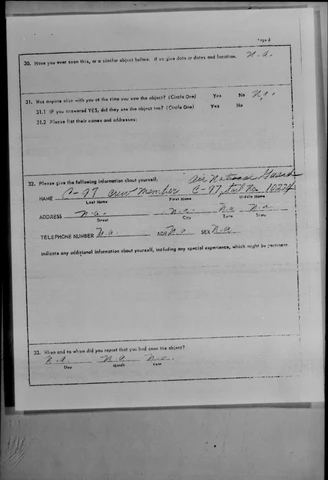 Page 8
30. Have you ever seen this, or a similar object before. If so give date or dates and location. N.A.
31. Was anyone else with you at the time you saw the object? (Circle One) Yes No N.A.
31.1 IF you answered YES, did they see the object too? (Circle One) Yes No
31.2 Please list their names and addresses:
32. Please give the following information about yourself:
Air National Guard
NAME C-97 Crew Member C-97, Tail No. 10224
Last Name First Name Middle Name
ADDRESS N.A. N.A. N.A. N.A
Street City Zone State
TELEPHONE NUMBER N.A. AGE N.A SEX N.A
Indicate any additional information about yourself, including any special experience, which might be pertinent.
33. When and to whom did you report that you had seen the object?
N.A. N.A N.A.
Day Month Year